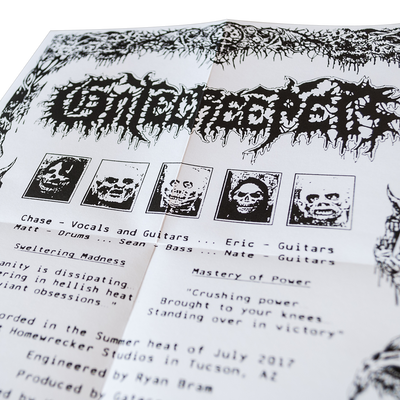 GATECREEPER
Chase - Vocals and Guitars ... Eric - Guitars
Matt - Drums ... Sean - Bass ... Nate - Guitars
Sweltering Madness
anity is dissipating
ering in hellish heat
viant obsessions "
Mastery of Power
"Crushing power
Brought to your knees
Standing over in victory"
orded in the Summer heat of July 2017
Homewrecker Studios in Tucson, AZ
Engineered by Ryan Bram
Produced by